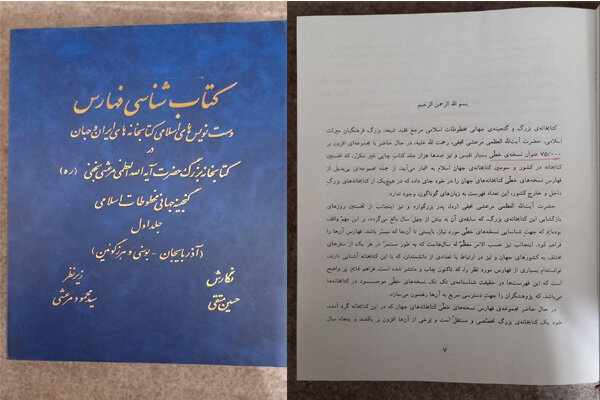 کتاب شناسی فهارس
دست نویس های اسلامی کتابخانه های ایران و جهان
در
کتابخانه بزرگ حضرت آیة الله العظمی مرعشی نجفی (ره)
گنجینه جهانی مخطوطات اسلامی
جلد اول
(آذربایجان - بوسنی و هرزگوئین)
نگارش
حسین متقی
زیر نظر
سید محمود مرعشی
بسم الله الرحمن الرحیم
کتابخانه‌ی بزرگ و گنجینه‌ی جهانی مخطوطات اسلامی مرجع فقید شیعه، بزرگ فرهنگبان میراث
اسلامی، حضرت آیت‌الله العظمی مرعشی نجفی، رحمت الله علیه، در حال حاضر با مجموعه‌ای افزون بر
۷۵/۰۰۰ عنوان نسخه‌ی خطّی بسیار نفیس و نیز صدها هزار جلد کتاب چاپی غیر مکرّر، که نخستین
کتابخانه در کشور و سومین کتابخانه‌ی جهان اسلام به شمار می‌آید، از جمله مجموعه‌ی بی‌بدیل از
فهارس نسخه‌های خطّی کتابخانه‌های جهان را در خود جای داده که در هیچ‌یک از کتابخانه‌های بزرگ
داخل و خارج کشور، این تعداد فهرست به زبان‌های گوناگون، وجود ندارد.
حضرت آیت‌الله العظمی مرعشی نجفی (ره)، پدر بزرگوارم و نیز اینجانب از نخستین روزهای
بازگشایی این کتابخانه‌ی بزرگ، که سابقه‌ی آن به بیش از چهل سال بالغ می‌گردد، بر این مهمّ واقف
بوده‌ایم که جهت شناسایی نسخه‌های خطّی مورد نیاز، بایستی تا آن‌جا که میسّر باشد، فهارس آن‌ها را
فراهم نمود. اینجانب نیز حسب الامر معظّم‌له سال‌هاست که به طور مستمرّ در هر یک از سفرهای
مختلف به کشورهای جهان و نیز در ارتباط با تعدادی از دانشمندان که با این کتابخانه آشنایی دارند،
توانسته‌ام بسیاری از فهارس مورد نظر را، که تاکنون چاپ و منتشر شده است، فراهم نمایم. پر واضح
است که این فهرست‌ها در حقیقت شناسنامه‌ی تک تک نسخه‌های خطّی موجود در کتابخانه‌ها
می‌باشند، که پژوهشگران را جهت دسترسی سریع به آن‌ها رهنمون می‌سازد.
در حال حاضر مجموعه‌ی فهارس نسخه‌های خطّی کتابخانه‌های جهان که در این کتابخانه گرد آمده،
خود یک کتابخانه‌ی بزرگ تخصّصی و مستقلّ است و برخی از آن‌ها افزون بر یکصد و پنجاه سال
۷